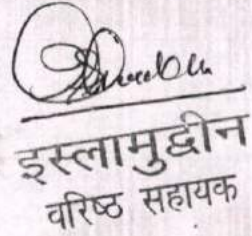 इस्लामुद्दीन
वरिष्ठ सहायक